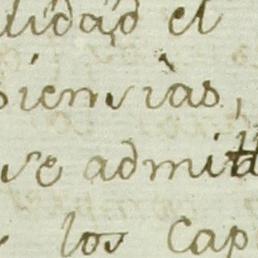 lidad el
siemvias,
ve admitt
los Cap